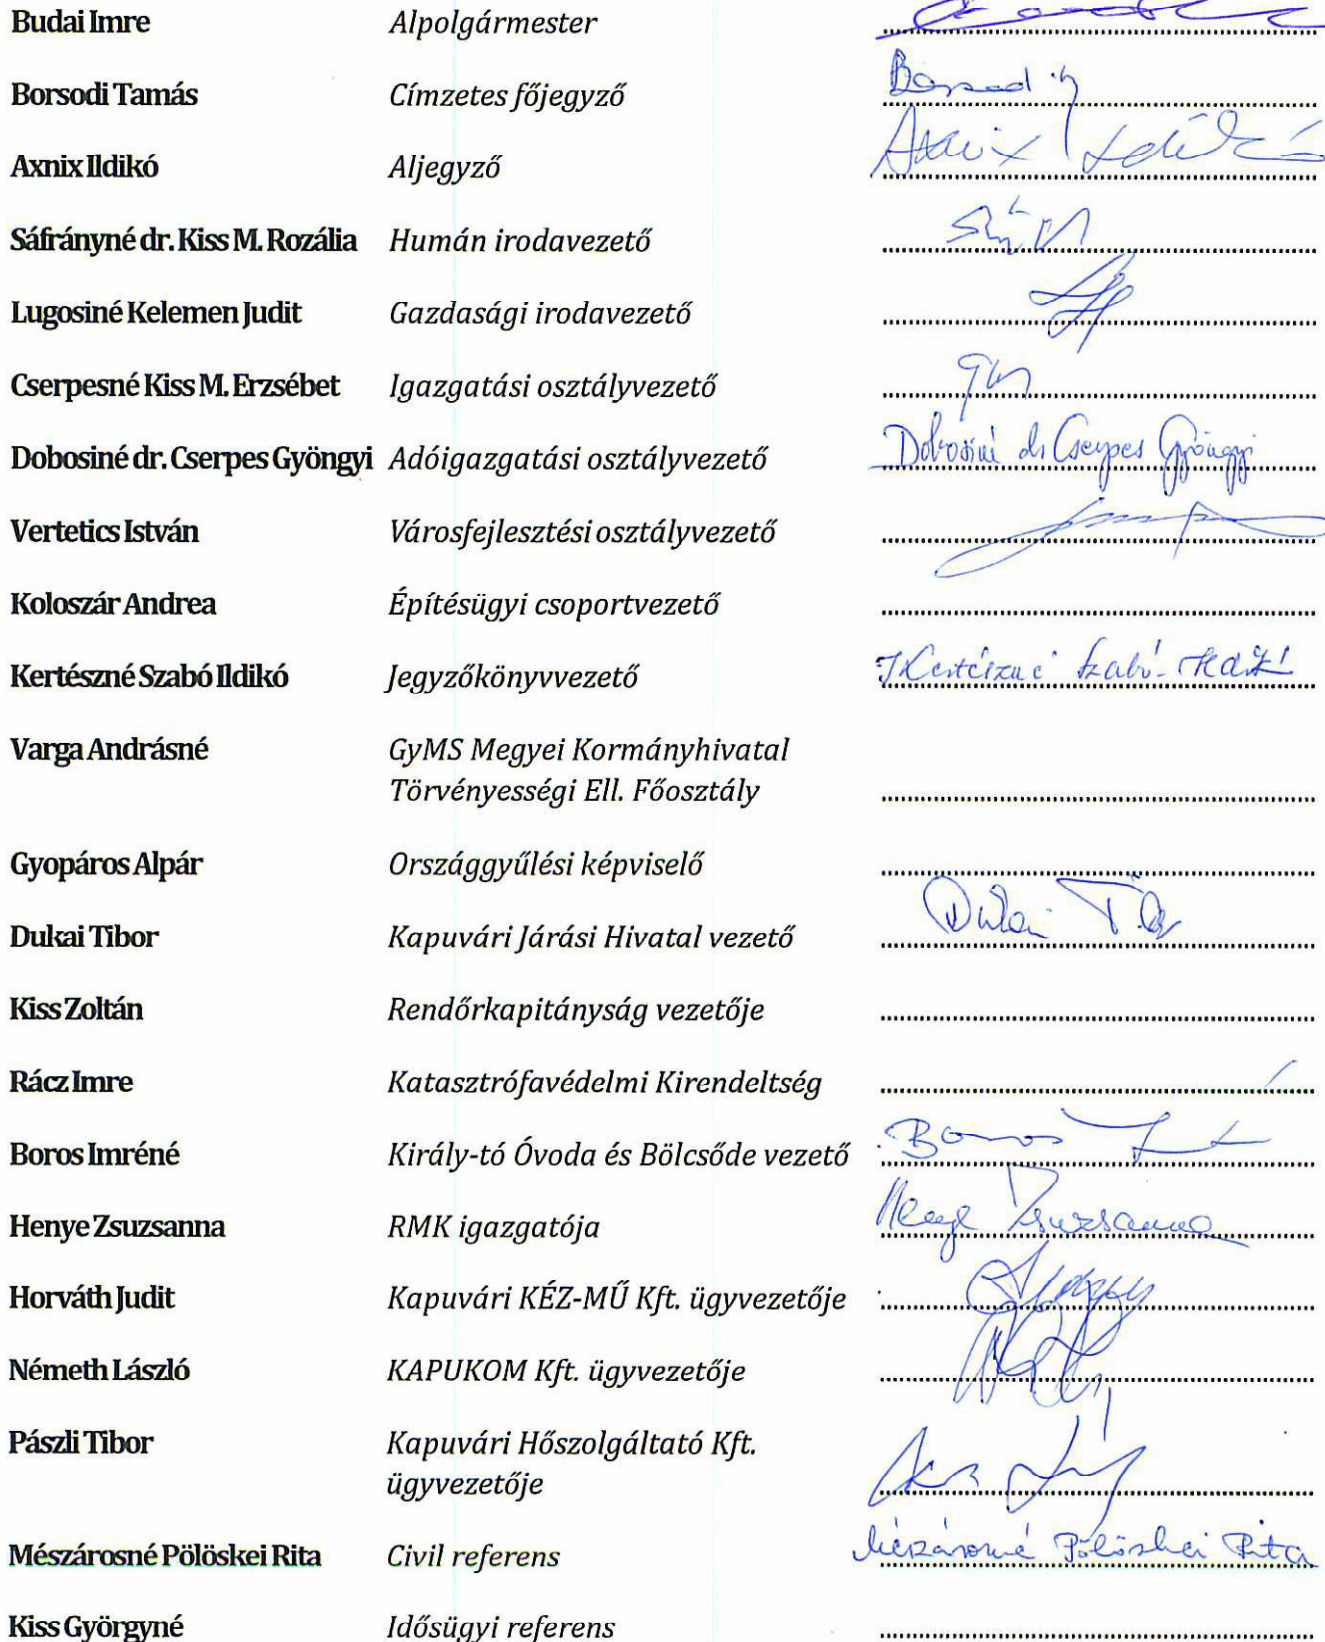 Budai Imre Alpolgármester
Borsodi Tamás Címzetes főjegyző Borsodi
Axnix Ildikó Aljegyző Axnix Ildikó
Sáfrányné dr. Kiss M. Rozália Humán irodavezető
Lugosiné Kelemen Judit Gazdasági irodavezető
Cserpesné Kiss M. Erzsébet Igazgatási osztályvezető
Dobosiné dr. Cserpes Gyöngyi Adóigazgatási osztályvezető Dobosiné dr Cserpes Gyöngyi
Vertetics István Városfejlesztési osztályvezető
Koloszár Andrea Építésügyi csoportvezető
Kertészné Szabó Ildikó Jegyzőkönyvvezető Kertészné Szabó Ildikó
Varga Andrásné GyMS Megyei Kormányhivatal
Törvényességi Ell. Főosztály
Gyopáros Alpár Országgyűlési képviselő
Dukai Tibor Kapuvári Járási Hivatal vezető Dukai
Kiss Zoltán Rendőrkapitányság vezetője
Rácz Imre Katasztrófavédelmi Kirendeltség
Boros Imréné Király-tó Óvoda és Bölcsőde vezető Boros
Henye Zsuzsanna RMK igazgatója Henye Zsuzsanna
Horváth Judit Kapuvári KÉZ-MŰ Kft. ügyvezetője
Németh László KAPUKOM Kft. ügyvezetője
Pászli Tibor Kapuvári Hőszolgáltató Kft.
ügyvezetője
Mészárosné Pölöskei Rita Civil referens Mészárosné Pölöskei Rita
Kiss Györgyné Idősügyi referens